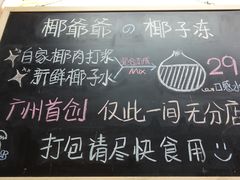 椰爷爷の椰子冻
自家椰肉打浆
新鲜椰子水
Mix
29
广州首创 仅此一间无分店
打包请尽快食用